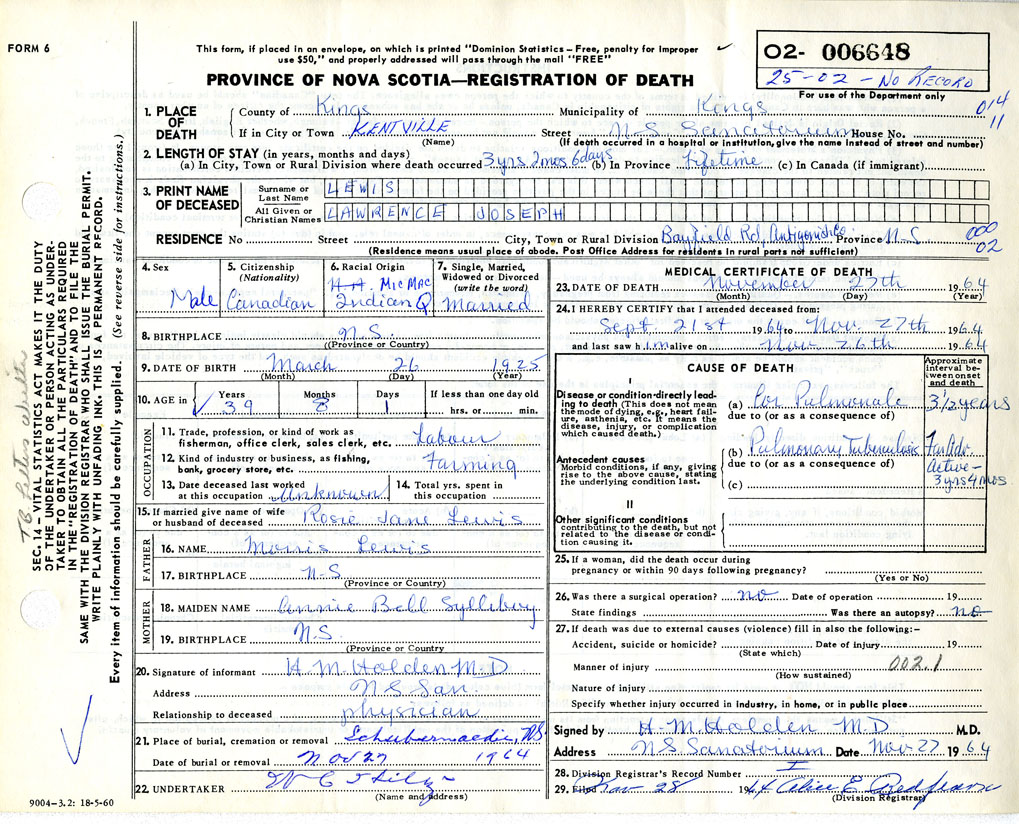 FORM 6
This form, if placed in an envelope, on which is printed "Dominion Statistics – Free, penalty for improper
use $50," and properly addressed will pass through the mail "FREE"
O2- 006648
25-02 – No RECORD
For use of the Department only
PROVINCE OF NOVA SCOTIA—REGISTRATION OF DEATH
014
11
1. PLACE OF DEATH
County of Kings Municipality of Kings
If in City or Town KENTVILLE Street N-S Sanatorium House No.
(Name) (If death occurred in a hospital or institution, give the name instead of street and number)
2. LENGTH OF STAY (in years, months and days)
(a) In City, Town or Rural Division where death occurred 3 yrs 2 mos 6 days (b) In Province Lifetime (c) In Canada (if immigrant)
3. PRINT NAME OF DECEASED
Surname or Last Name LEWIS
All Given or Christian Names LAWRENCE JOSEPH
RESIDENCE No Street City, Town or Rural Division Bayfield Rd, Antigonish Co. Province N-S
000
02
(Residence means usual place of abode. Post Office Address for residents in rural parts not sufficient)
4. Sex Male
5. Citizenship (Nationality) Canadian
6. Racial Origin MicMac Indian Q
7. Single, Married, Widowed or Divorced (write the word) Married
8. BIRTHPLACE N.S.
(Province or Country)
9. DATE OF BIRTH March 26 1925
(Month) (Day) (Year)
10. AGE in Years 39 Months 8 Days 1 If less than one day old hrs. or min.
OCCUPATION
11. Trade, profession, or kind of work as
fisherman, office clerk, sales clerk, etc. Labour
12. Kind of industry or business, as fishing,
bank, grocery store, etc. Farming
13. Date deceased last worked
at this occupation Unknown
14. Total yrs. spent in
this occupation
15. If married give name of wife
or husband of deceased Rosie Jane Lewis
FATHER
16. NAME Morris Lewis
17. BIRTHPLACE N-S
(Province or Country)
MOTHER
18. MAIDEN NAME Annie Bell Sylliboy
19. BIRTHPLACE N.S.
(Province or Country
20. Signature of informant H. M. Holden M.D
Address N S San.
Relationship to deceased physician
21. Place of burial, cremation or removal Schubernacadie, NS
Date of burial or removal Nov 27 1964
22. UNDERTAKER
(Name and address)
9004-3.2: 18-5-60
MEDICAL CERTIFICATE OF DEATH
23. DATE OF DEATH November 27th 1964
(Month) (Day) (Year)
24. I HEREBY CERTIFY that I attended deceased from:
Sept 21st 1964 to Nov. 27th 1964
and last saw him alive on Nov 26th 1964
CAUSE OF DEATH
Approximate interval between onset and death
I
Disease or condition directly leading to death (This does not mean the mode of dying, e.g., heart failure, asthenia, etc. It means the disease, injury, or complication which caused death.)
(a) Cor Pulmonale 3 1/2 years
due to (or as a consequence of)
Antecedent causes
Morbid conditions, if any, giving rise to the above cause, stating the underlying condition last.
(b) Pulmonary Tuberculosis Far Adv. Active – 3 yrs 4 mos
due to (or as a consequence of)
(c)
II
Other significant conditions
contributing to the death, but not related to the disease or condition causing it.
25. If a woman, did the death occur during
pregnancy or within 90 days following pregnancy?
(Yes or No)
26. Was there a surgical operation? no Date of operation 19
State findings Was there an autopsy? no
27. If death was due to external causes (violence) fill in also the following:–
Accident, suicide or homicide? Date of injury 19
(State which)
Manner of injury 002.1
(How sustained)
Nature of injury
Specify whether injury occurred in industry, in home, or in public place
Signed by H. M. Holden M.D M.D.
Address N S Sanatorium Date Nov 27 1964
28. Division Registrar's Record Number I
29. Filed Nov 28 1964 Alice E Redfearn
(Division Registrar)
SEC. 14 – VITAL STATISTICS ACT MAKES IT THE DUTY
OF THE UNDERTAKER OR PERSON ACTING AS UNDER-
TAKER TO OBTAIN ALL THE PARTICULARS REQUIRED
IN THE "REGISTRATION OF DEATH" AND TO FILE THE
SAME WITH THE DIVISION REGISTRAR WHO SHALL ISSUE THE BURIAL PERMIT.
WRITE PLAINLY WITH UNFADING INK. THIS IS A PERMANENT RECORD.
Every item of information should be carefully supplied. (See reverse side for instructions.)